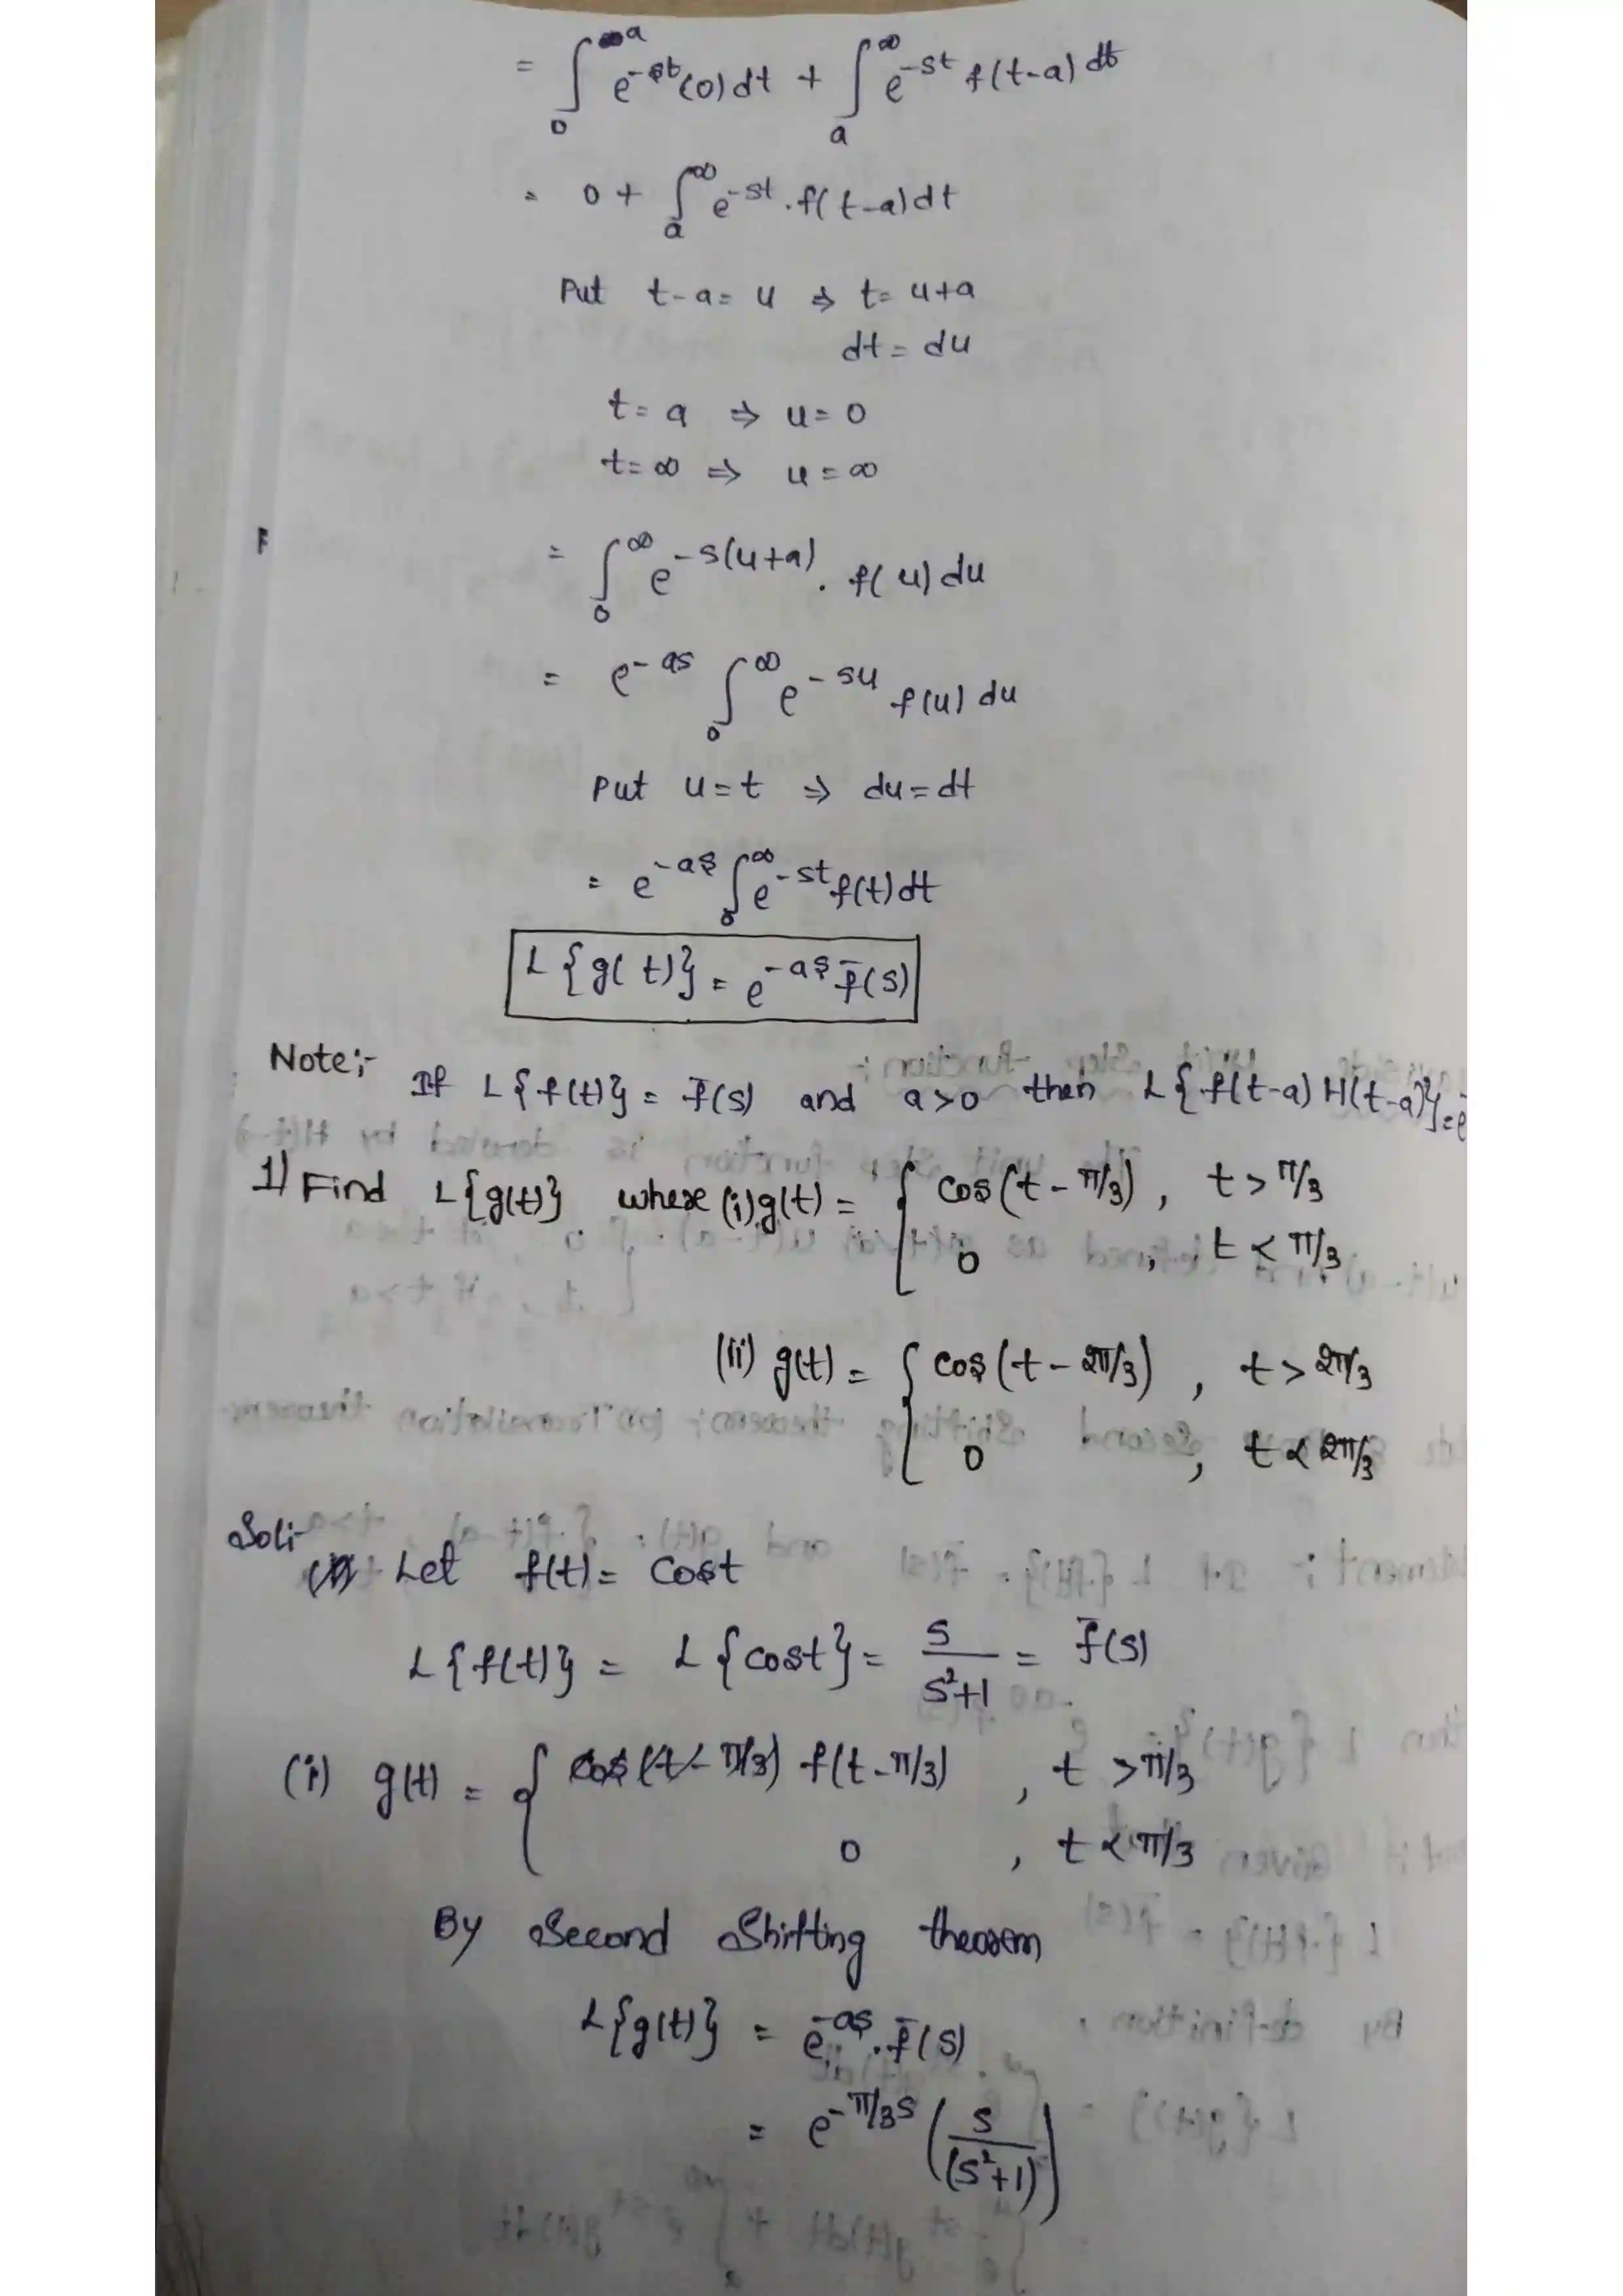 = ∫₀^a e^-st (0) dt + ∫ₐ^∞ e^-st f(t-a) dt
= 0 + ∫ₐ^∞ e^-st . f(t-a) dt
Put t-a = u ⇒ t = u+a
dt = du
t = a ⇒ u = 0
t = ∞ ⇒ u = ∞
= ∫₀^∞ e^-s(u+a) . f(u) du
= e^-as ∫₀^∞ e^-su f(u) du
Put u = t ⇒ du = dt
= e^-as ∫₀^∞ e^-st f(t) dt
L{g(t)} = e^-as f̄(s)
Note:-
If L{f(t)} = f̄(s) and a>0 then L{f(t-a) H(t-a)} = e
1) Find L{g(t)} where (i) g(t) = { cos(t - π/3) , t > π/3
0 , t < π/3
(ii) g(t) = { cos(t - 2π/3) , t > 2π/3
0 , t < 2π/3
Sol:-
Let f(t) = cost
L{f(t)} = L{cost} = s/(s²+1) = f̄(s)
(i) g(t) = { f(t - π/3) , t > π/3
0 , t < π/3
By Second Shifting theorem
L{g(t)} = e^-as . f̄(s)
= e^-π/3 s (s/(s²+1))